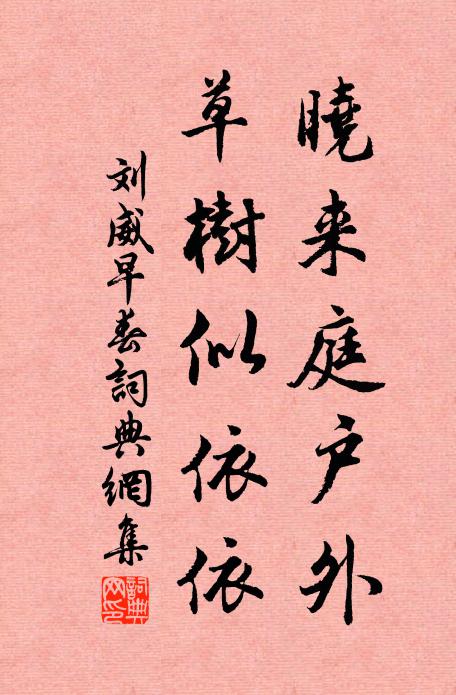 曉来庭户外
草樹似依依
刘威早春詞典網集
詞典網印